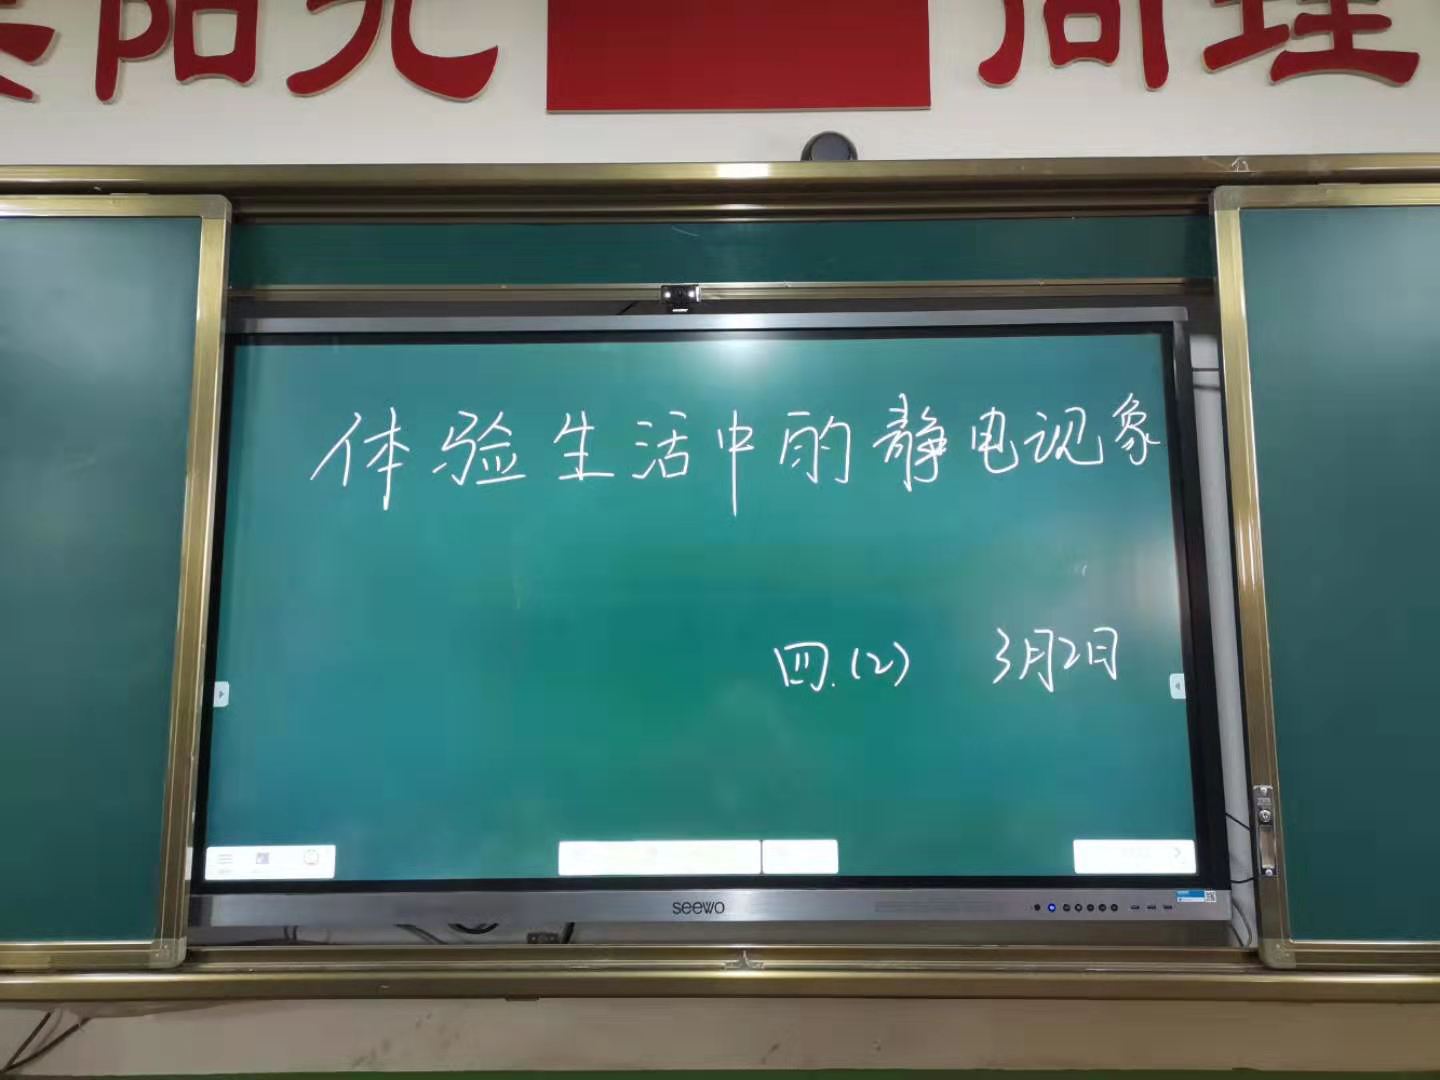 阳光
尚理
体验生活中的静电现象
四.(2) 3月2日
seewo